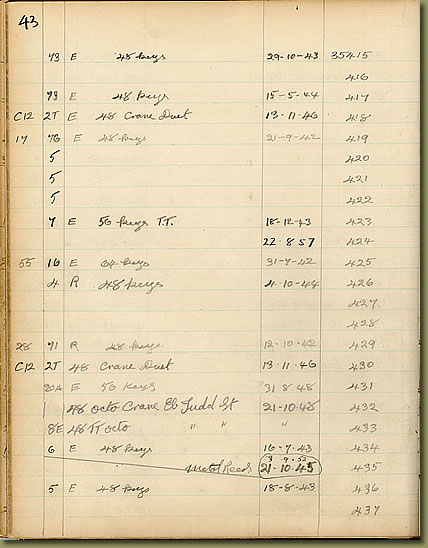 43
73 E 48 keys 29-10-43 35415
416
73 E 48 keys 15-5-44 417
C12 2T E 48 Crane Duet 13-11-46 418
17 76 E 48 keys 21-9-42 419
5 420
5 421
5 422
7 E 56 keys T.T. 18-12-43 423
22-8-57 424
55 16 E 64 keys 31-7-42 425
4 R 48 keys 4-10-44 426
427
428
28 71 R 48 keys 12-10-42 429
C12 2T 48 Crane Duet 13-11-46 430
20A E 56 Keys 31-8-48 431
1 48 octo Crane Eb Judd St 21-10-48 432
8E 48 octo " " " 433
6 E 48 keys 16-7-43 434
3-9-52
Metal Reeds 21-10-45 435
5 E 48 keys 18-8-43 436
437